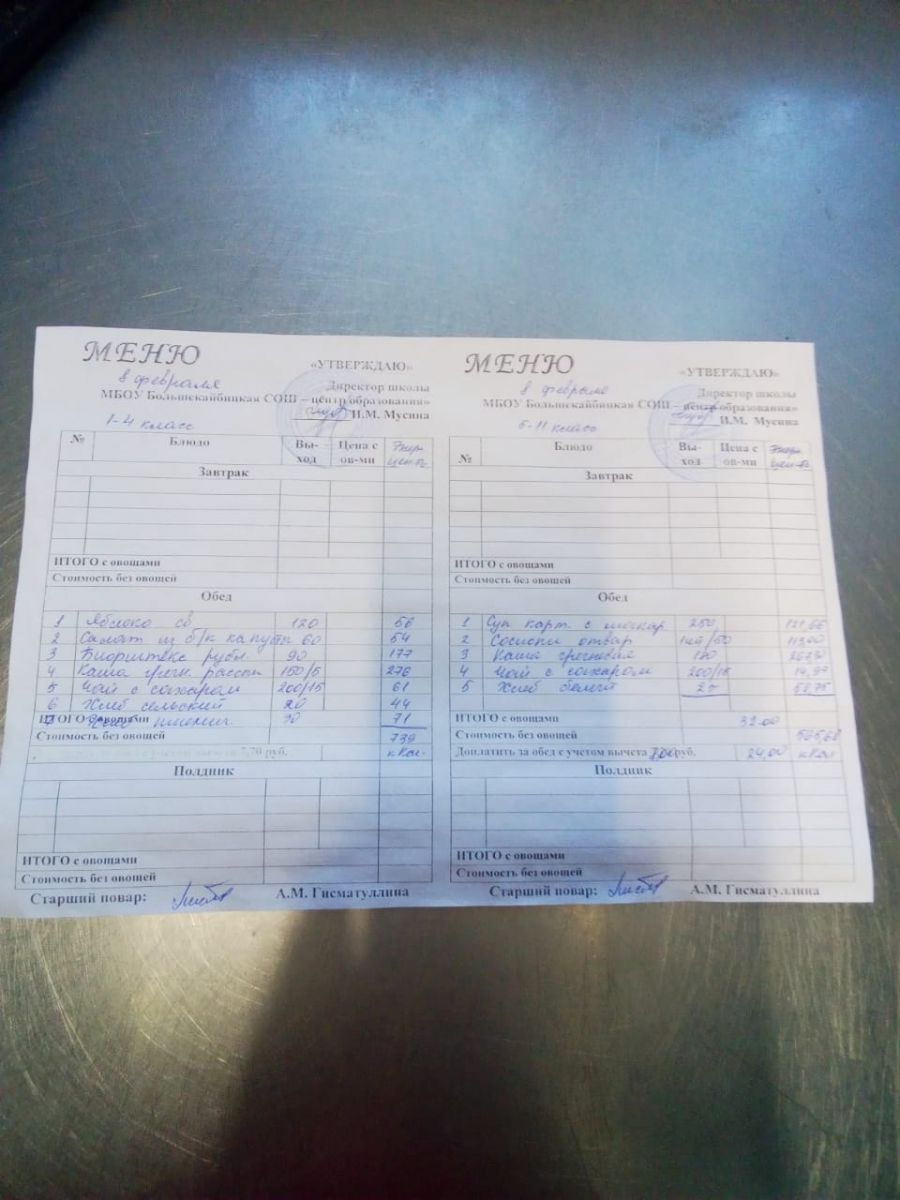 МЕНЮ
«УТВЕРЖДАЮ»
8 февраля
Директор школы
МБОУ Большекайбицкая СОШ – центр образования»
И.М. Мусина
1-4 класс
№ Блюдо Вы-ход Цена с ов-ми Энер. цен-ть
Завтрак
ИТОГО с овощами
Стоимость без овощей
Обед
1 Яблоко св. 120 56
2 Салат из б/к капусты 60 54
3 Бифштекс рубл. 90 177
4 Каша гречн. рассып 150/5 276
5 Чай с сахаром 200/15 61
6 Хлеб сельский 20 44
7 Хлеб пшенич. 30 71
ИТОГО с овощами
Стоимость без овощей 739
7,70 руб. кКал.
Полдник
ИТОГО с овощами
Стоимость без овощей
Старший повар: А.М. Гисматуллина
МЕНЮ
«УТВЕРЖДАЮ»
8 февраля
Директор школы
МБОУ Большекайбицкая СОШ – центр образования»
И.М. Мусина
5-11 класс
№ Блюдо Вы-ход Цена с ов-ми Энер. цен-ть
Завтрак
ИТОГО с овощами
Стоимость без овощей
Обед
1 Суп карт. с макар 250 121,66
2 Сосиски отвар
3 Каша гречневая
4 Чай с сахаром 200/15
5 Хлеб белый 25 58,75
ИТОГО с овощами 32.00
Стоимость без овощей
Доплатить за обед с учетом вычета руб. 24,00 кКал
Полдник
ИТОГО с овощами
Стоимость без овощей
Старший повар: А.М. Гисматуллина